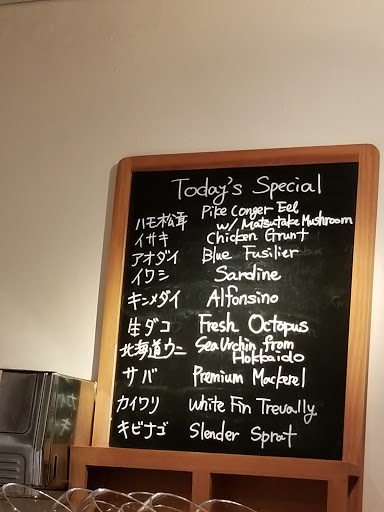 Today's Special
ハモ松茸 Pike Conger Eel
w/ Matsutake Mushroom
イサキ Chicken Grunt
アオダイ Blue Fusilier
イワシ Sardine
キンメダイ Alfonsino
生ダコ Fresh Octopus
北海道ウニ Sea Urchin from
Hokkaido
サバ Premium Mackerel
カイワリ White Fin Trevally
キビナゴ Slender Sprat